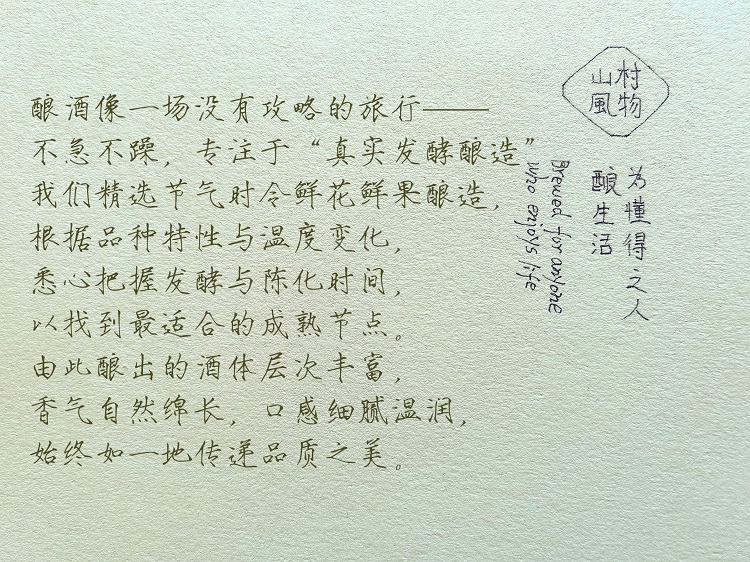 酿酒像一场没有攻略的旅行——
不急不躁，专注于“真实发酵酿造”
我们精选节气时令鲜花鲜果酿造，
根据品种特性与温度变化，
悉心把握发酵与陈化时间，
以找到最适合的成熟节点。
由此酿出的酒体层次丰富，
香气自然绵长，口感细腻温润，
始终如一地传递品质之美。
村物
山風
为懂得之人
酿生活
Brewed for anyone
who enjoys life